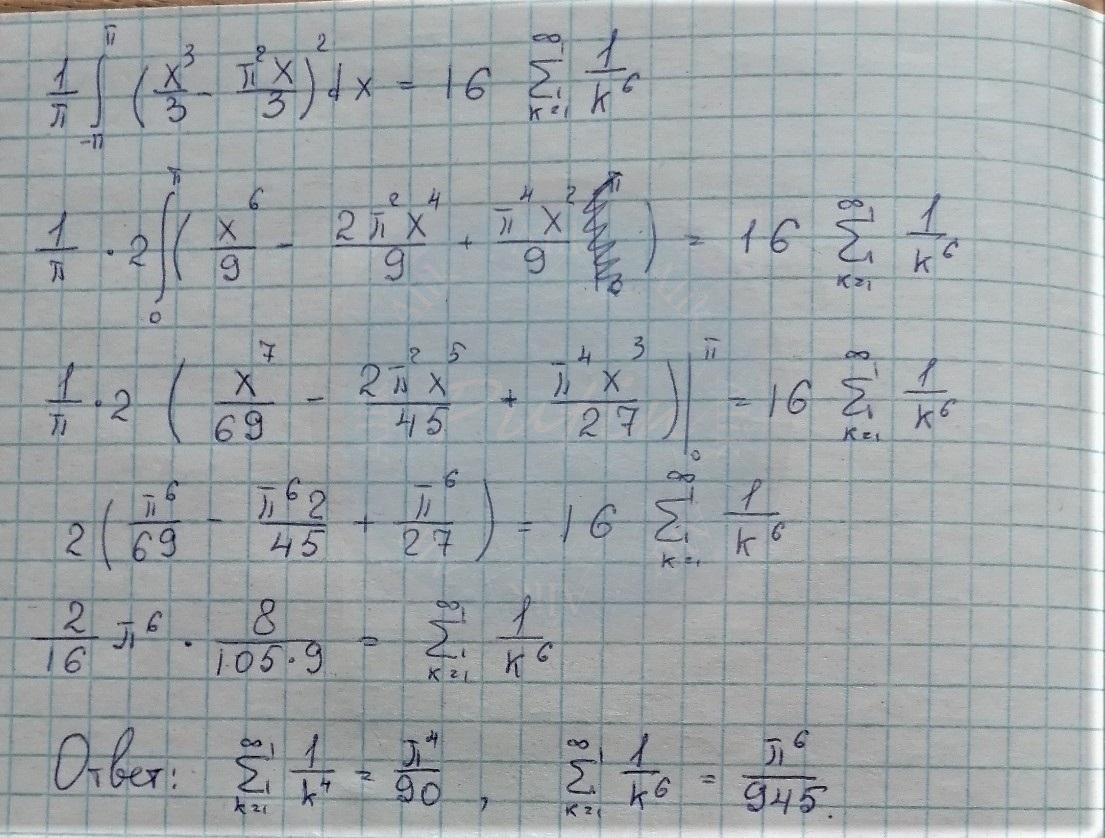 1/π ∫_{-π}^{π} (x³/3 - π²x/3)² dx = 16 ∑_{k=1}^{∞} 1/k⁶
1/π · 2 ∫_{0}^{π} (x⁶/9 - 2π²x⁴/9 + π⁴x²/9) = 16 ∑_{k=1}^{∞} 1/k⁶
1/π · 2 (x⁷/69 - 2π²x⁵/45 + π⁴x³/27) |_{0}^{π} = 16 ∑_{k=1}^{∞} 1/k⁶
2 (π⁶/69 - π⁶2/45 + π⁶/27) = 16 ∑_{k=1}^{∞} 1/k⁶
2/16 π⁶ · 8/(105·9) = ∑_{k=1}^{∞} 1/k⁶
Ответ: ∑_{k=1}^{∞} 1/k⁴ = π⁴/90 , ∑_{k=1}^{∞} 1/k⁶ = π⁶/945.